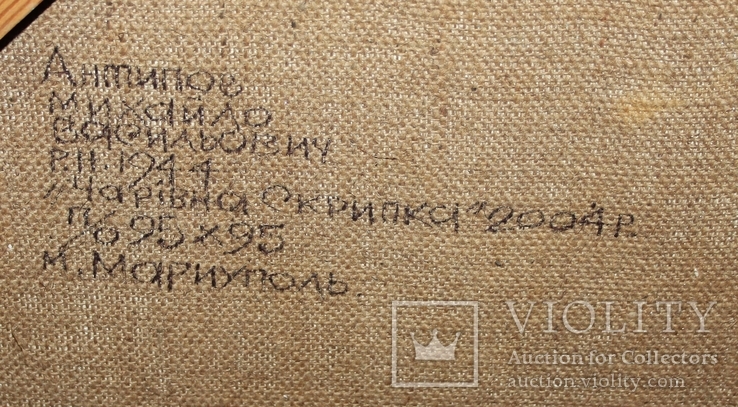 Антипов
Михайло
Васильович
р.н. 1944
„Чарівна Скрипка" 2004 р.
п/о 95х95
м. Мариуполь.
VIOLITY
Auction for Collectors
auction.violity.com